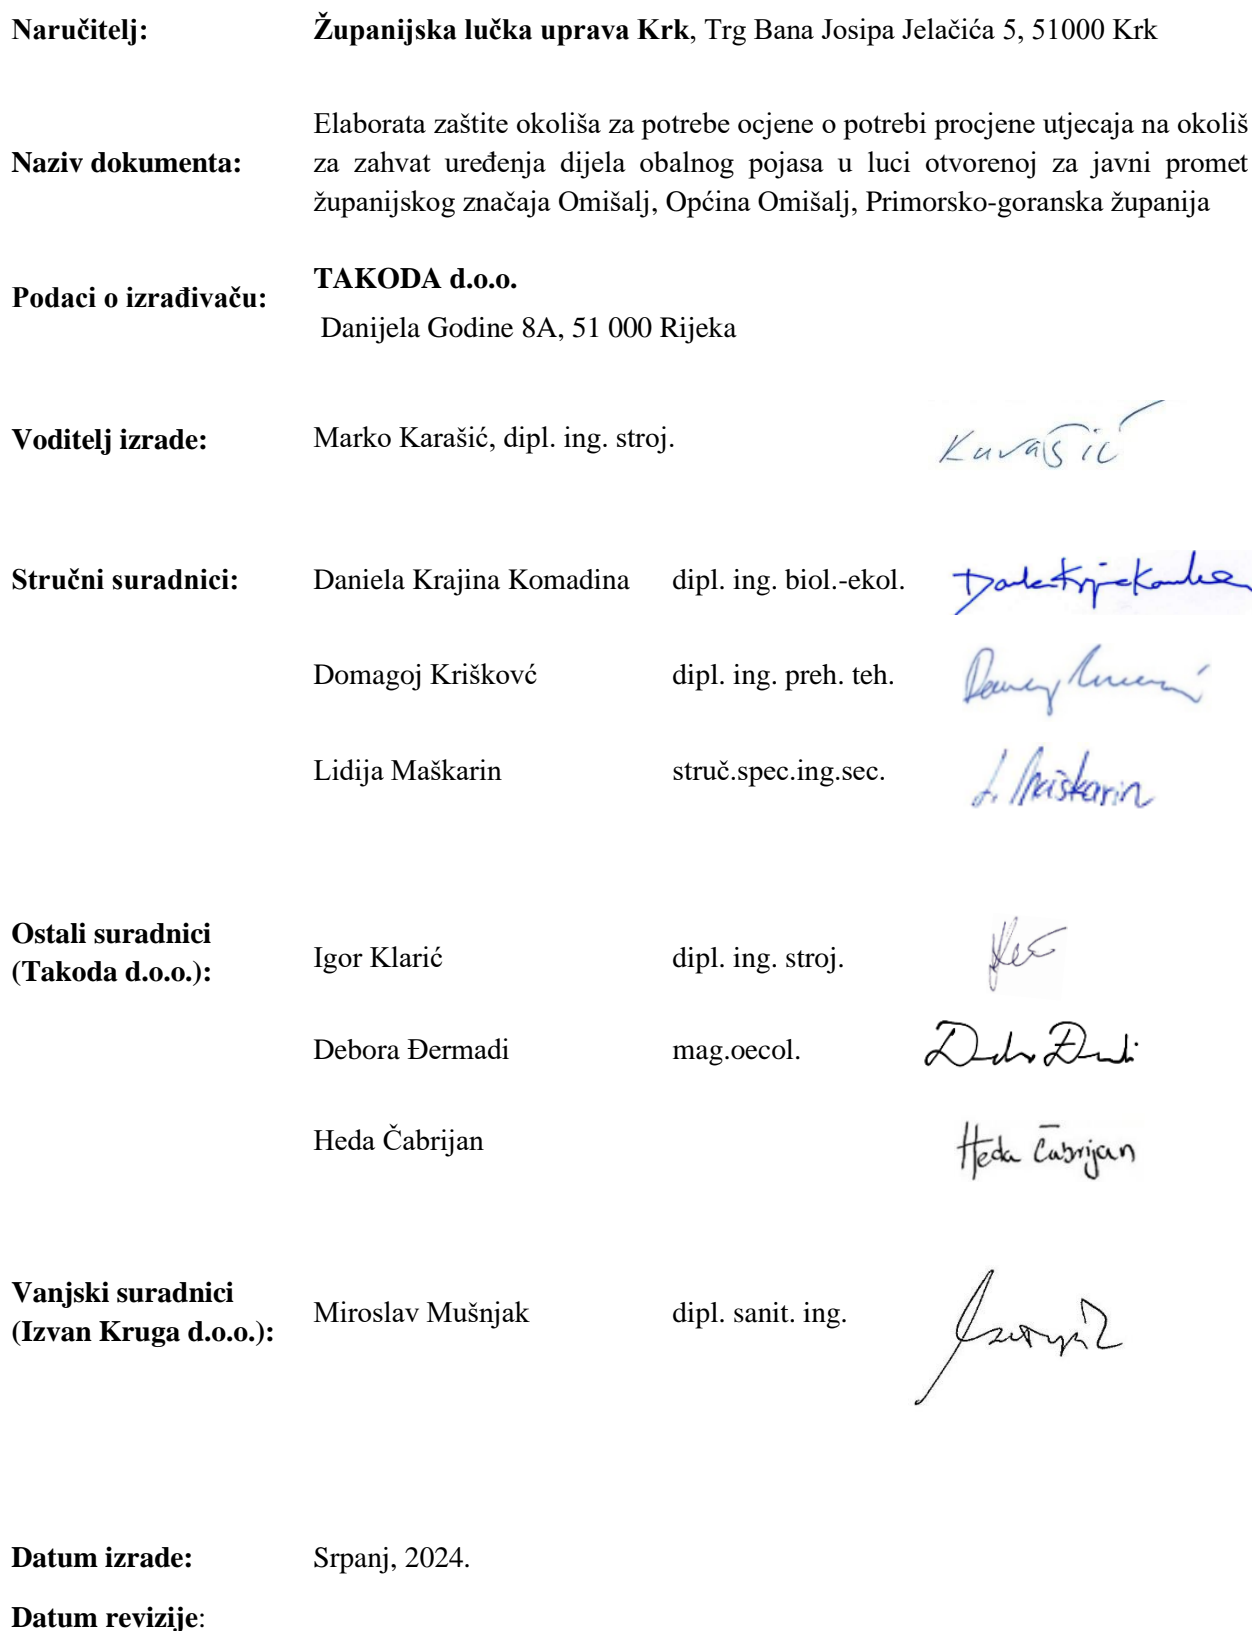 Naručitelj: Županijska lučka uprava Krk, Trg Bana Josipa Jelačića 5, 51000 Krk
Naziv dokumenta: Elaborata zaštite okoliša za potrebe ocjene o potrebi procjene utjecaja na okoliš
za zahvat uređenja dijela obalnog pojasa u luci otvorenoj za javni promet
županijskog značaja Omišalj, Općina Omišalj, Primorsko-goranska županija
Podaci o izrađivaču: TAKODA d.o.o.
Danijela Godine 8A, 51 000 Rijeka
Voditelj izrade: Marko Karašić, dipl. ing. stroj. Karašić
Stručni suradnici: Daniela Krajina Komadina dipl. ing. biol.-ekol.
Domagoj Kriškovć dipl. ing. preh. teh.
Lidija Maškarin struč.spec.ing.sec. L. Maškarin
Ostali suradnici
(Takoda d.o.o.): Igor Klarić dipl. ing. stroj.
Debora Đermadi mag.oecol.
Heda Čabrijan Heda Čabrijan
Vanjski suradnici
(Izvan Kruga d.o.o.): Miroslav Mušnjak dipl. sanit. ing.
Datum izrade: Srpanj, 2024.
Datum revizije: